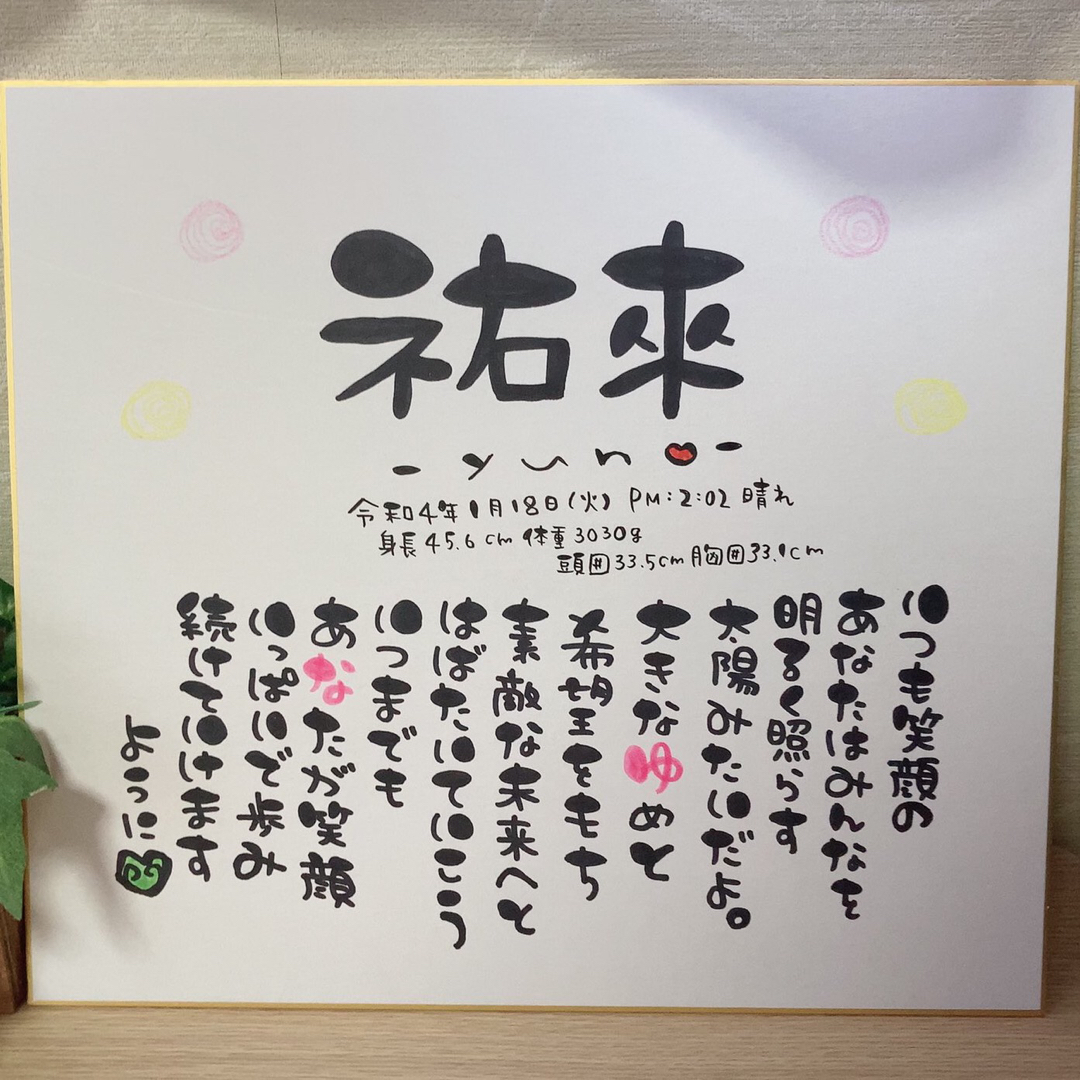 祐來
- yun♥ -
令和4年1月18日(火) PM:2:02 晴れ
身長45.6cm 体重3030g
頭囲33.5cm 胸囲33.1cm
いつも笑顔の
あなたはみんなを
明るく照らす
太陽みたいだよ。
大きなゆめと
希望をもち
素敵な未来へと
はばたいていこう
いつまでも
あなたが笑顔
いっぱいで歩み
続けていけます
ように